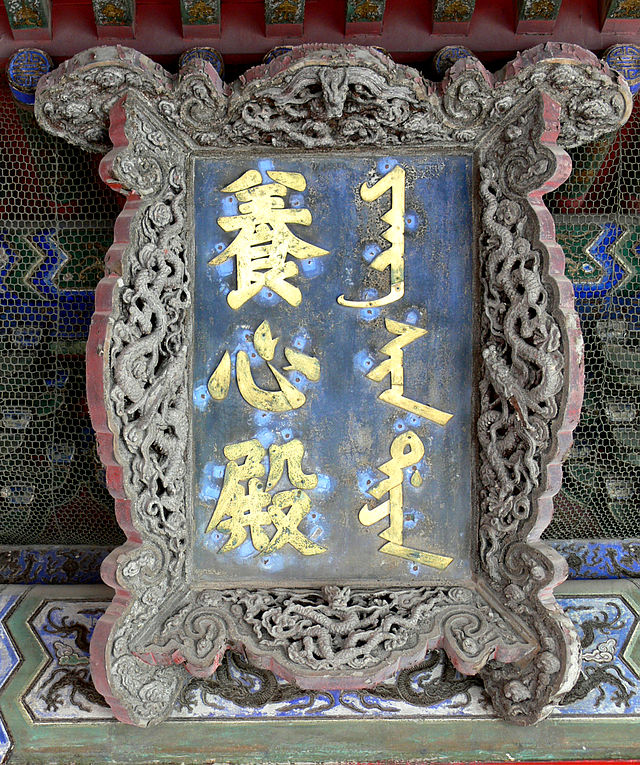 養心殿
ᠶᠠᠩ ᠰᡳᠨ ᡩᡳᠶᠠᠨ